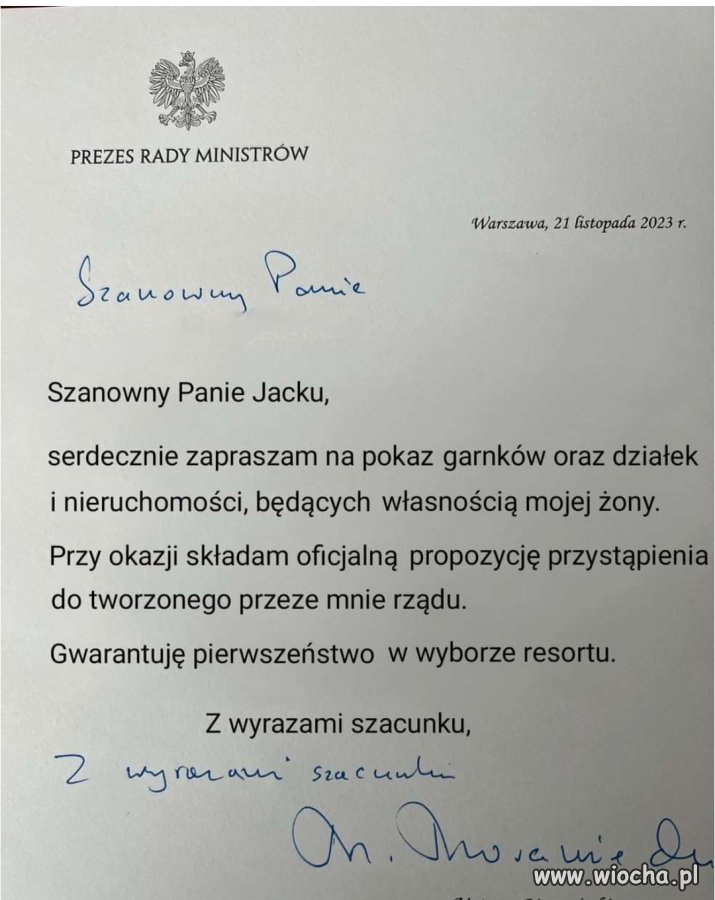 PREZES RADY MINISTRÓW
Warszawa, 21 listopada 2023 r.
Szanowny Panie
Szanowny Panie Jacku,
serdecznie zapraszam na pokaz garnków oraz działek
i nieruchomości, będących własnością mojej żony.
Przy okazji składam oficjalną propozycję przystąpienia
do tworzonego przeze mnie rządu.
Gwarantuję pierwszeństwo w wyborze resortu.
Z wyrazami szacunku,
Z wyrazami szacunku
M.
www.wiocha.pl